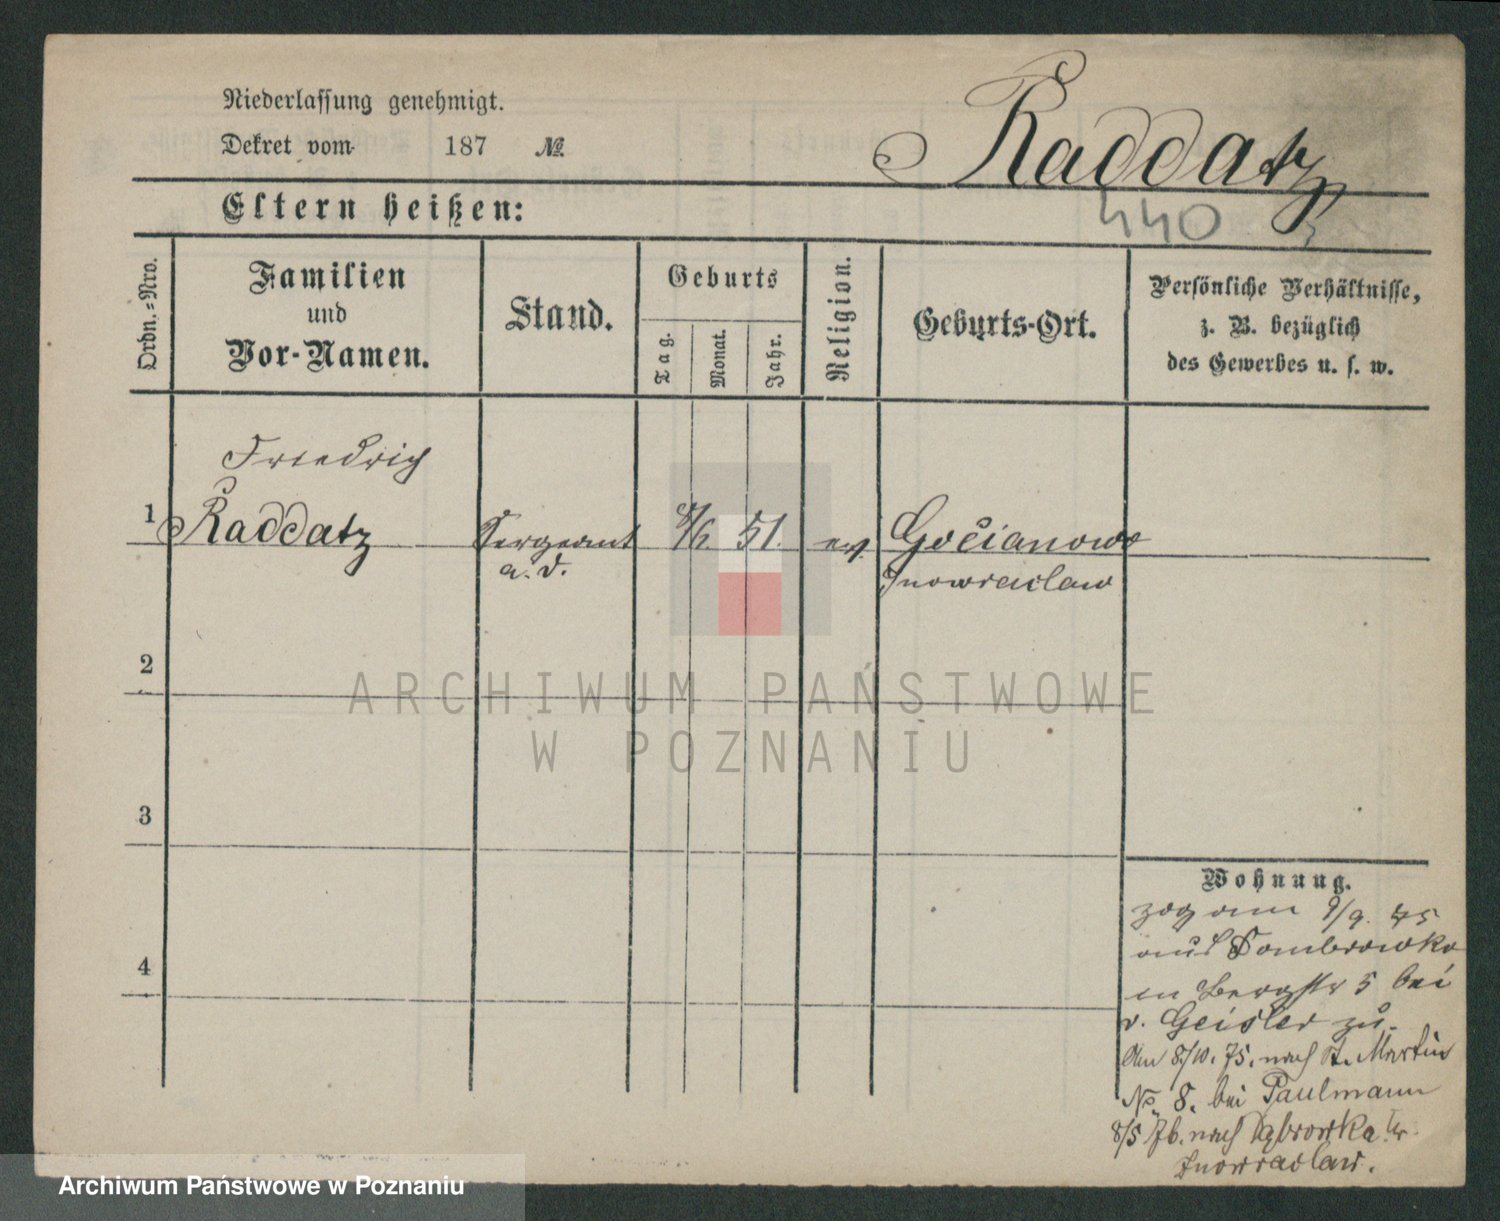 Niederlassung genehmigt.
Dekret vom 187 №
Raddatz
440
Eltern heißen:
Ordn.-Nro.
Familien
und
Vor-Namen.
Stand.
Geburts
Tag.
Monat.
Jahr.
Religion.
Geburts-Ort.
Persönliche Verhältnisse,
z. B. bezüglich
des Gewerbes u. s. w.
Friedrich
1 Raddatz Sergeant 51. ev. Gocianowo
a. D. Inowraclaw
2
3
4
Wohnung.
zog am 9/9. 75
aus Dombrowka
in Bergstr 5 bei
v. Geisler zu.
Am 8/10. 75. nach St. Martin
No. 8. bei Paulmann
8/5 76. nach Dąbrowka Kr
Inowraclaw.
ARCHIWUM PAŃSTWOWE
W POZNANIU
Archiwum Państwowe w Poznaniu